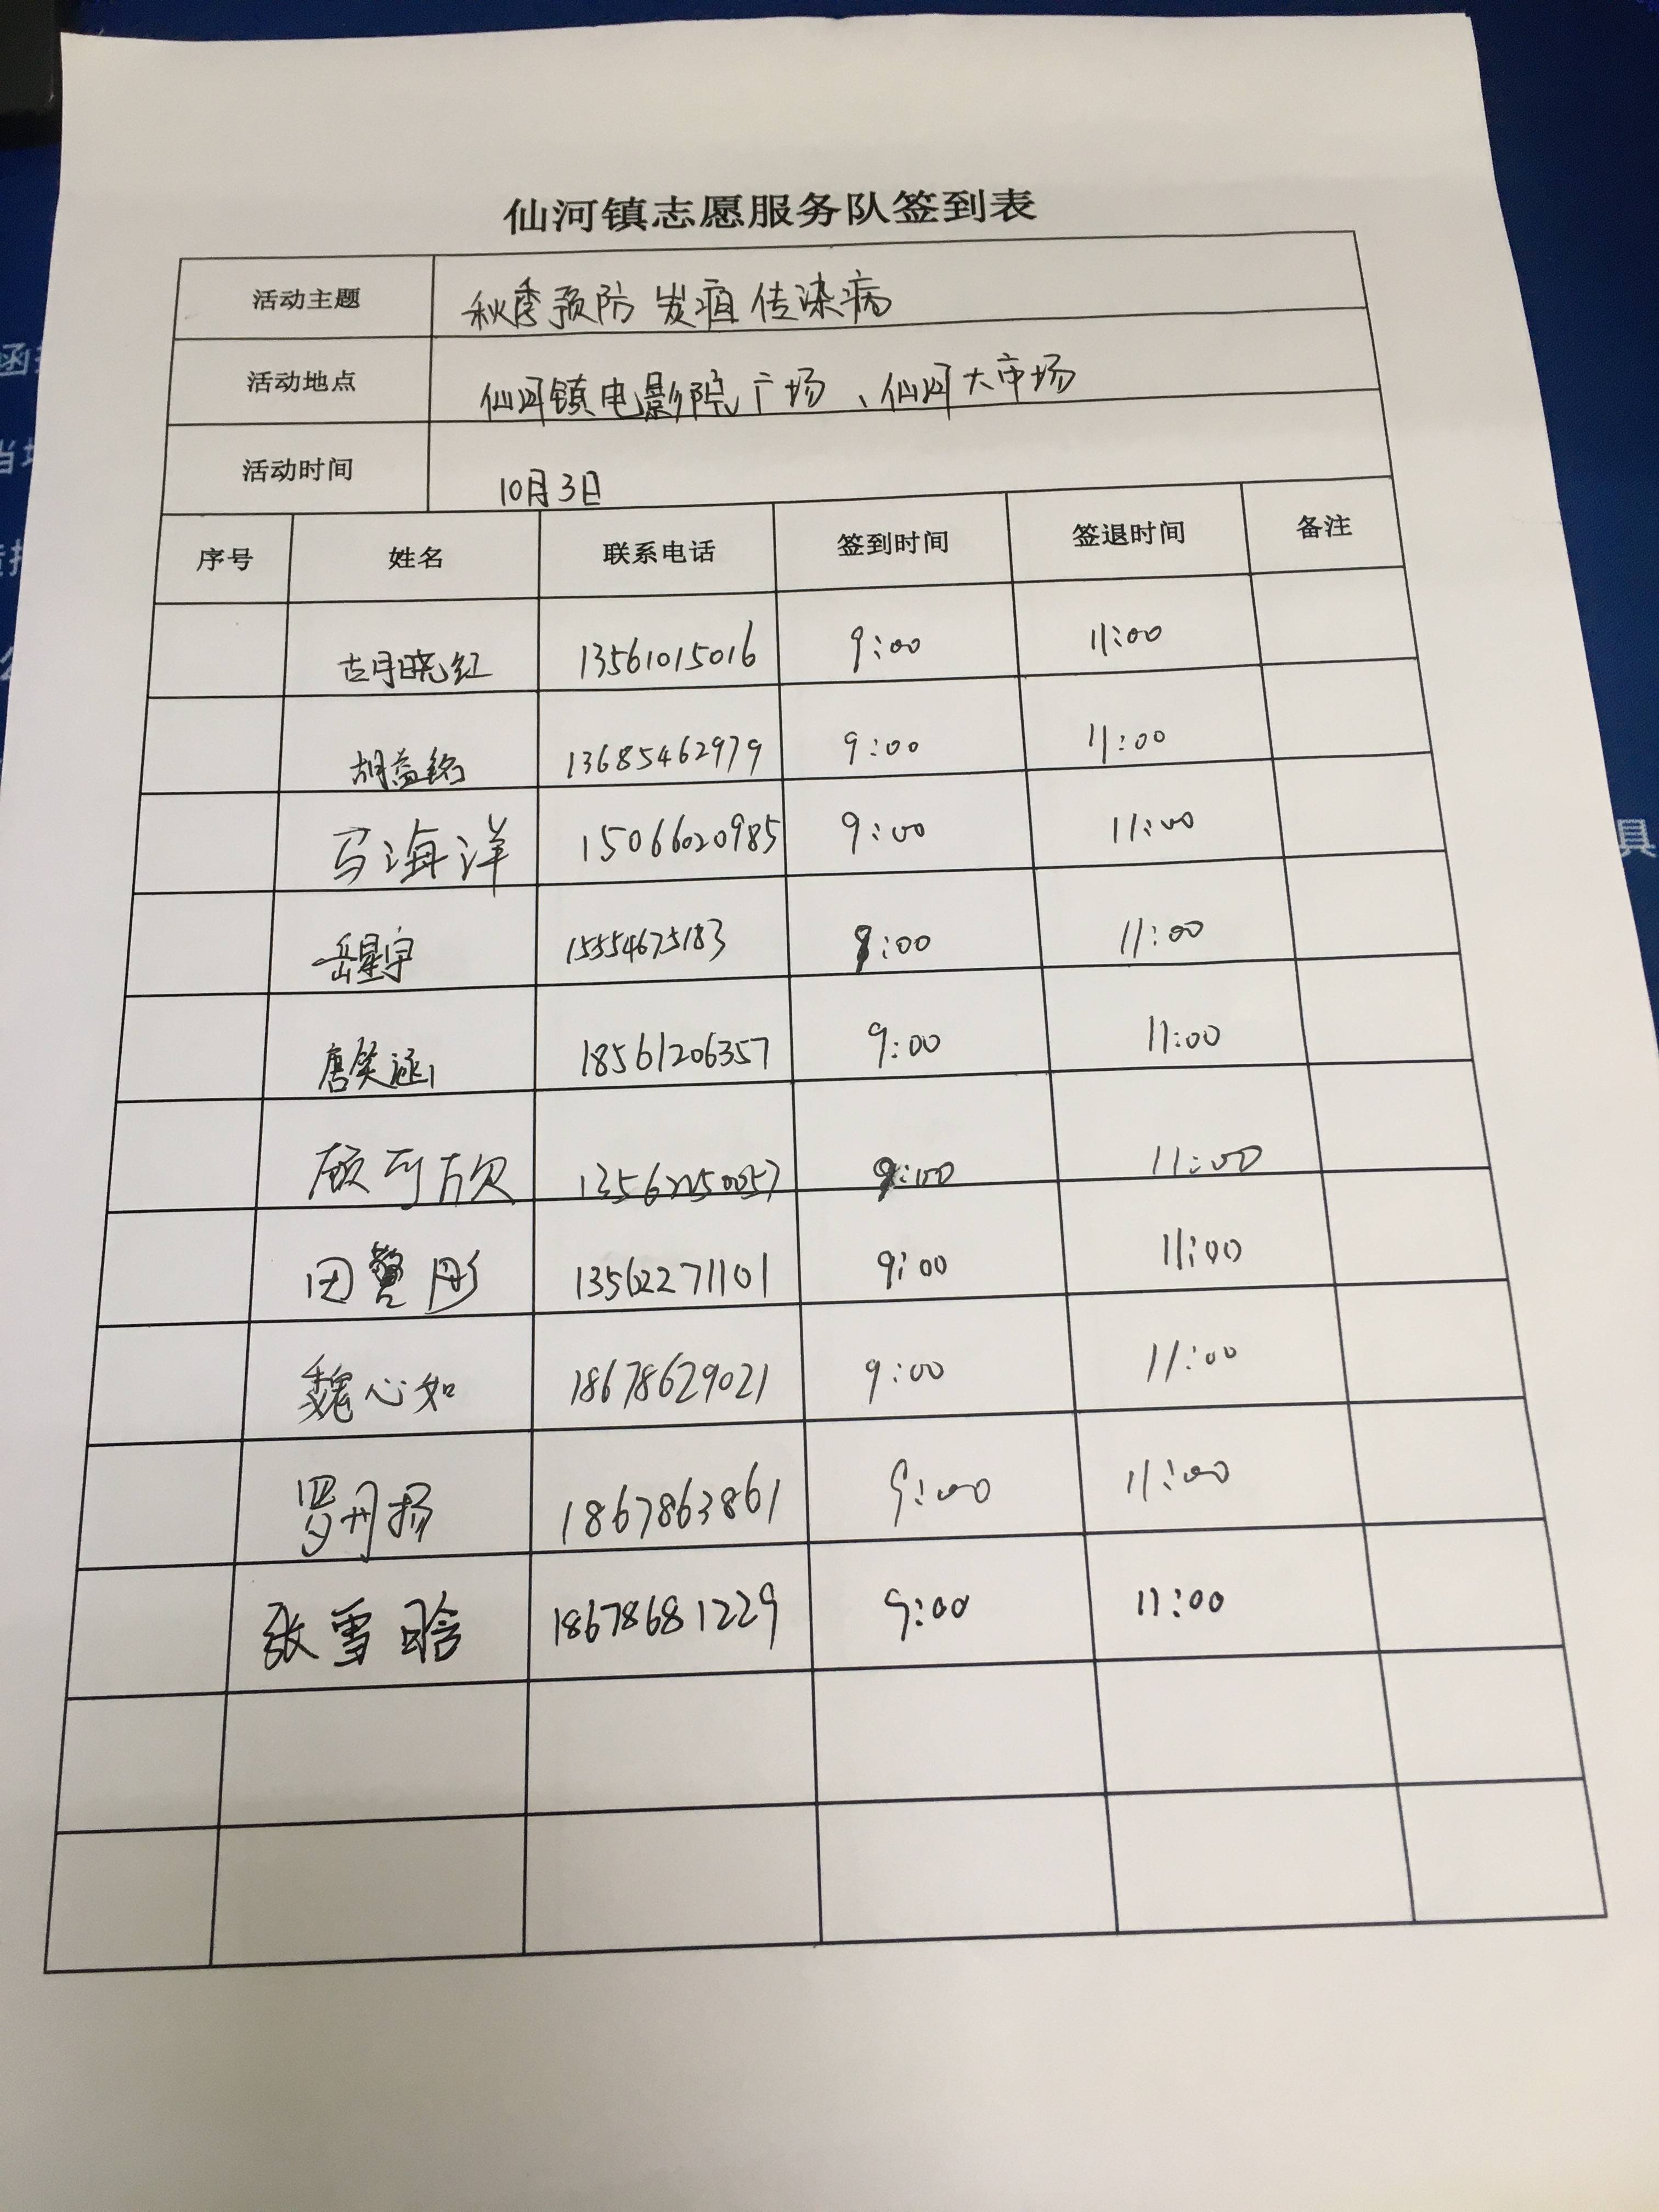 仙河镇志愿服务队签到表
活动主题 秋季预防发疽传染病
活动地点 仙河镇电影院广场、仙河大市场
活动时间 10月3日
序号 姓名 联系电话 签到时间 签退时间 备注
胡晓红 13561015016 9:00 11:00
胡益铭 13685462979 9:00 11:00
马海洋 15066020985 9:00 11:00
岳星宇 15554675183 9:00 11:00
唐笑涵 18561206357 9:00 11:00
顾可欣 9:00 11:00
田 彤 13562271101 9:00 11:00
魏心如 18678629021 9:00 11:00
罗丹扬 1867863861 9:00 11:00
张雪晗 18678681229 9:00 11:00
具